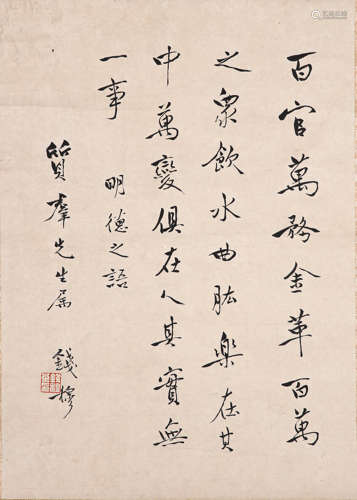 百官萬務金革百萬
之眾飲水曲肱樂在其
中萬變俱在人其實無
一事
明德之語
質羣先生屬
錢穆